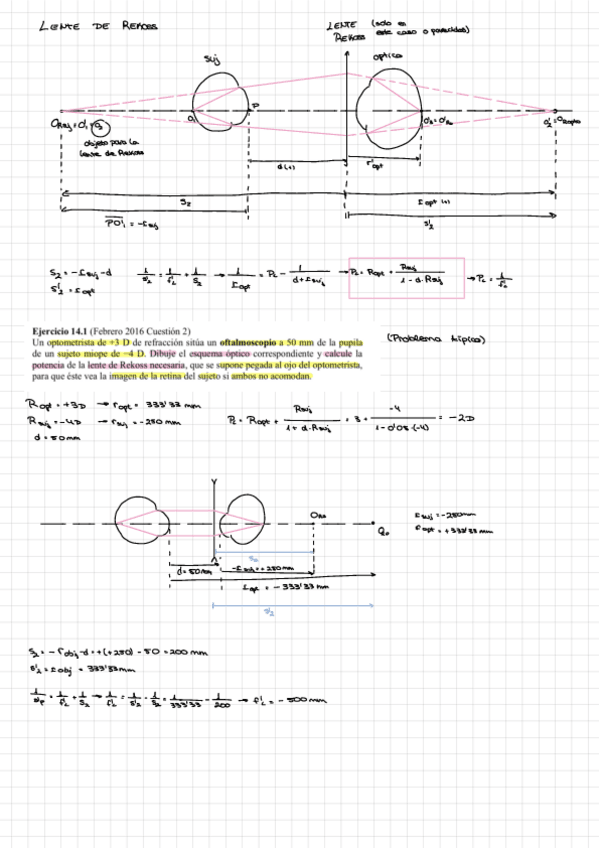 LENTE DE REKOSS
LENTE (solo en
REKOSS este caso o parecidos)
suj
optico
P
objeto para la
lente de Rekoss
d (+)
r'opt
S₂
r opt (+)
PO'₁ = -r suj
S'₂
S₂ = -r suj - d
S'₂ = r opt
1/S'₂ = 1/f'L + 1/S₂ → 1/r opt = PL - 1/(d + r suj) → PL = Ropt + Rsuj/(1 + d·Rsuj) → PL = 1/f'L
Ejercicio 14.1 (Febrero 2016 Cuestión 2)
Un optometrista de +3 D de refracción sitúa un oftalmoscopio a 50 mm de la pupila
de un sujeto miope de −4 D. Dibuje el esquema óptico correspondiente y calcule la
potencia de la lente de Rekoss necesaria, que se supone pegada al ojo del optometrista,
para que éste vea la imagen de la retina del sujeto si ambos no acomodan.
(Problema típico)
Ropt = +3D → r opt = 333'33 mm
Rsuj = -4D → r suj = -250 mm
d = 50 mm
PL = Ropt + Rsuj/(1 + d·Rsuj) = 3 + -4/(1 - 0'05·(-4)) = -2D
r suj = -250mm
r opt = +333'33 mm
d = 50mm
-r suj = +250 mm
r opt = -333'33 mm
S'₂
S₂ = -r obj - d = +(+250) - 50 = 200 mm
S'₂ = r obj = 333'33mm
1/S'₂ = 1/f'L + 1/S₂ → 1/f'L = 1/S'₂ - 1/S₂ = 1/333'33 - 1/200 → f'L = -500mm